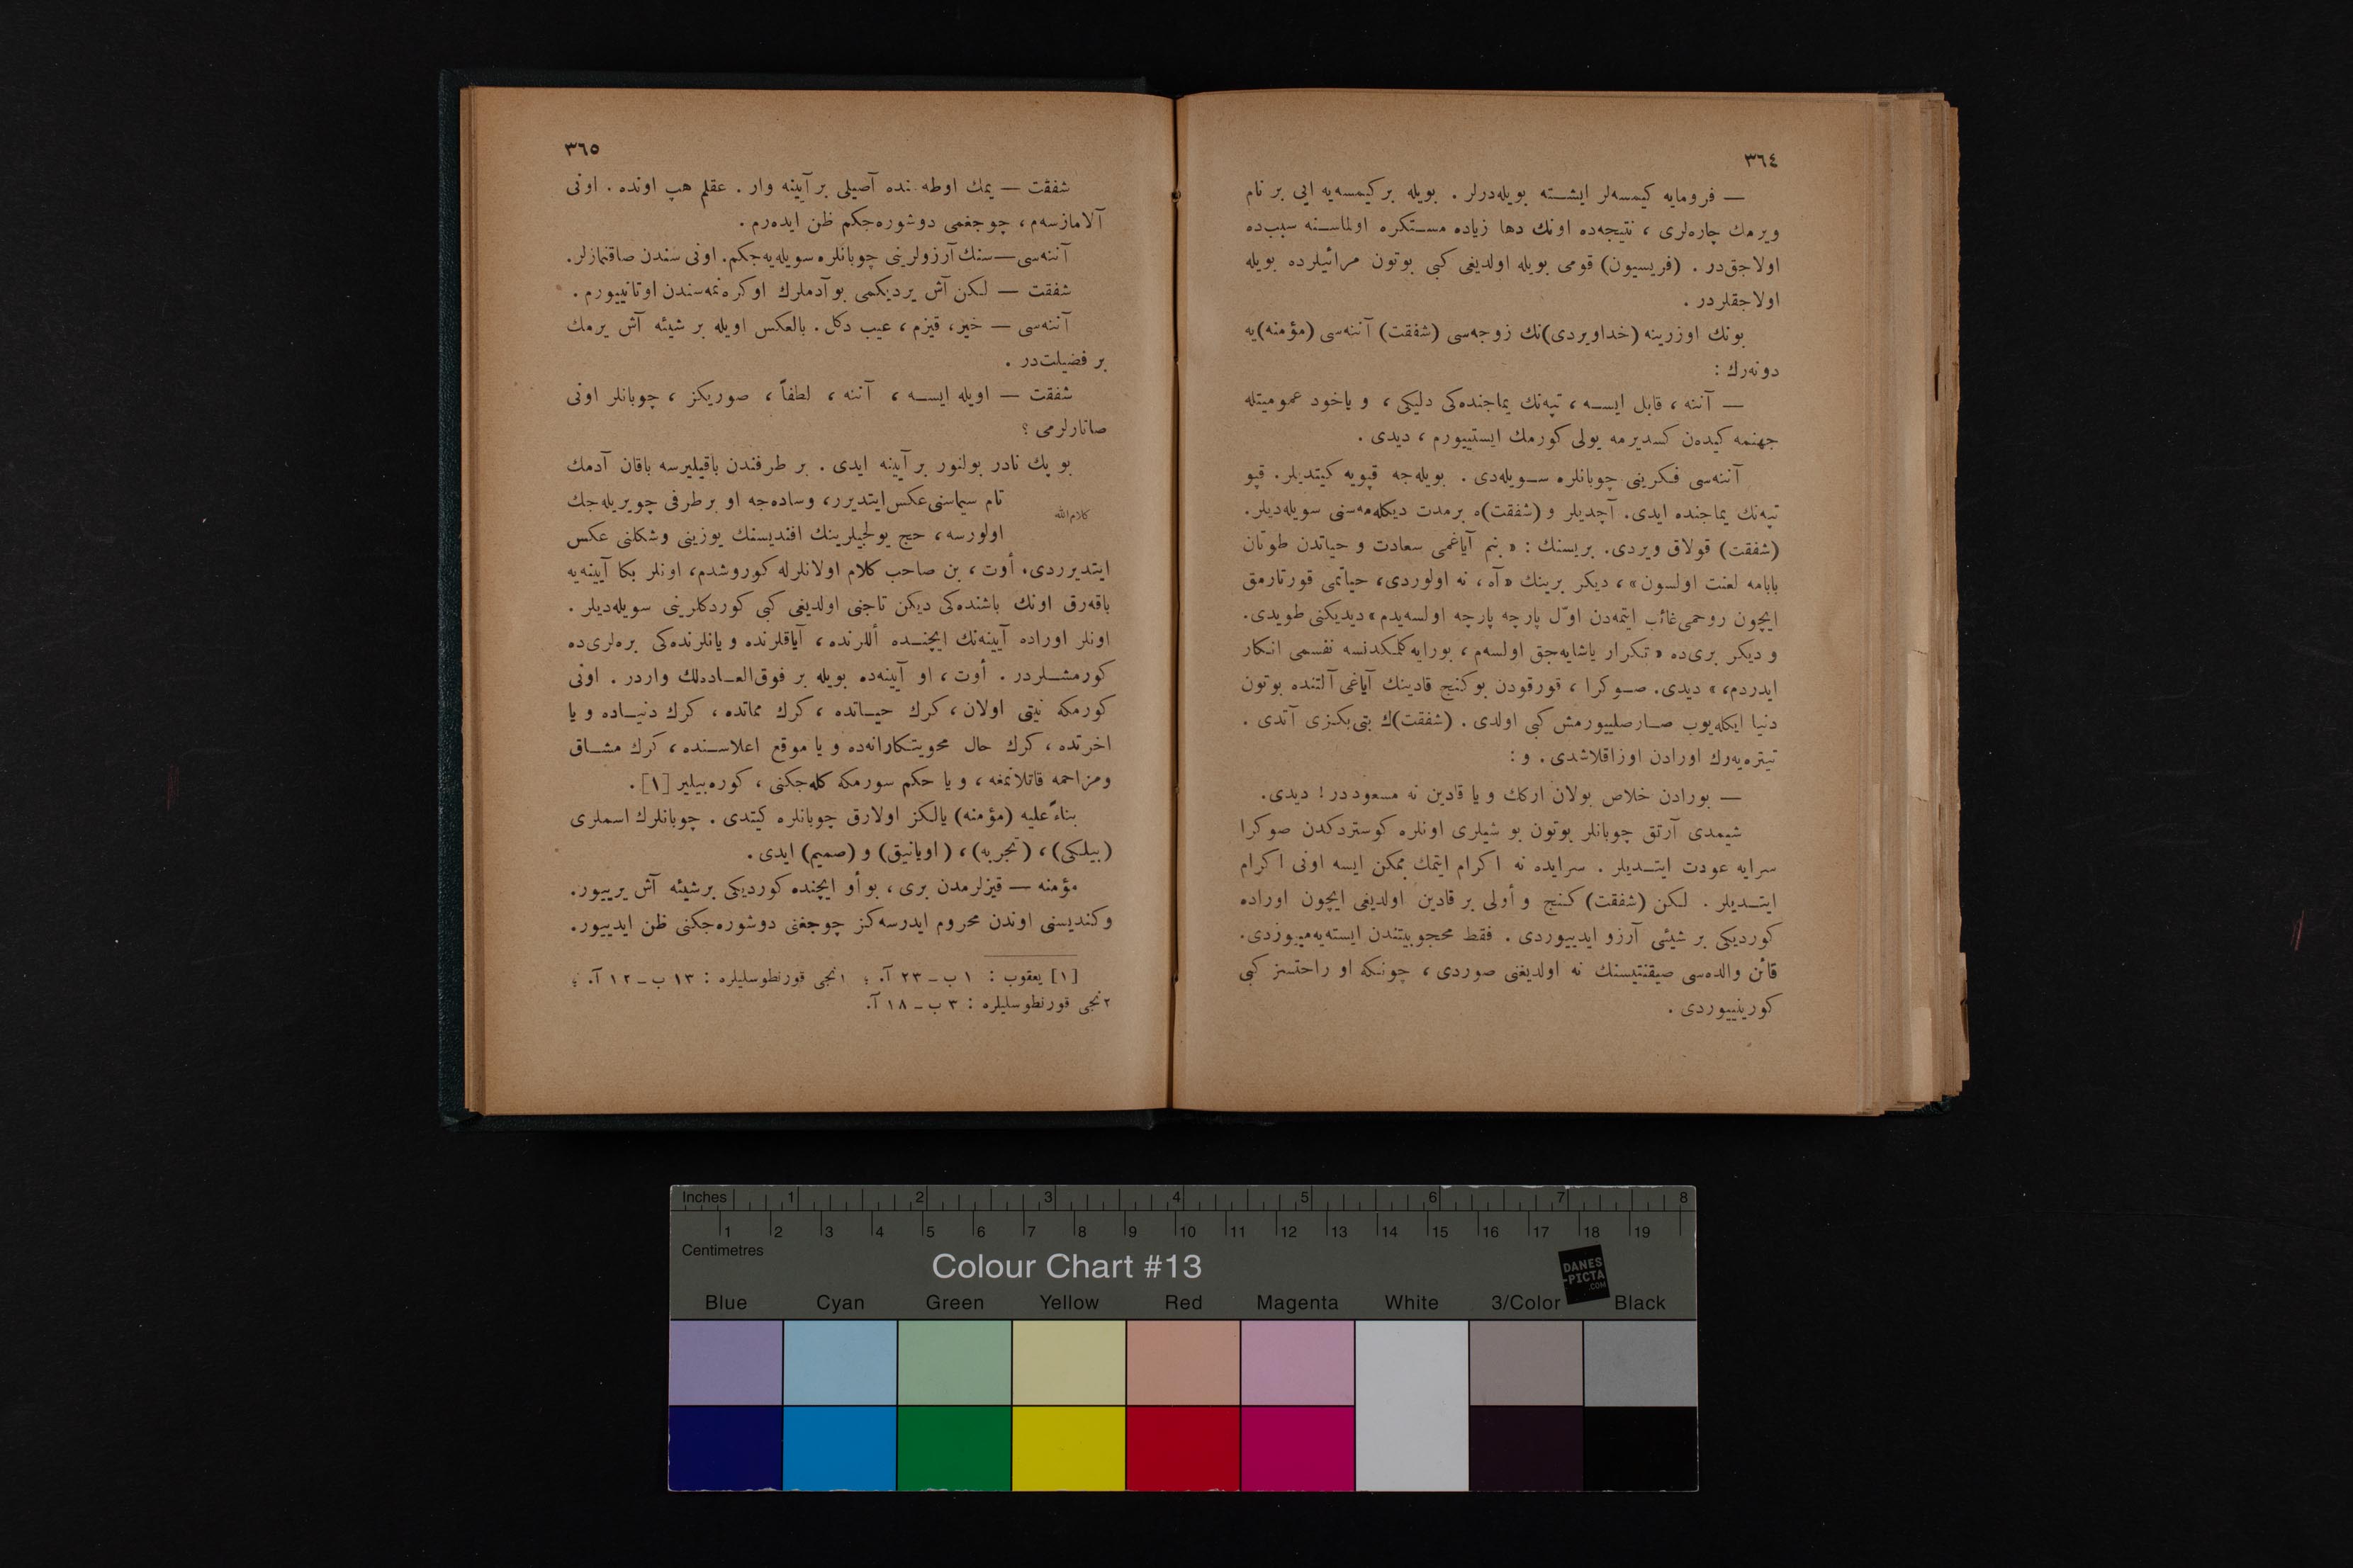 ٣٦٤
— فرومايه كيمسه‌لر ايشته بويله‌درلر . بويله بر كيمسه‌يه ايى بر نام
ويرمك چاره‌لرى ، نتيجه‌ده اونك دها زياده مستكره اولماسنه سبب‌ده
اولاجق‌در . (فريسيون) قومى بويله اولديغى كبى بوتون مرائيلرده بويله
اولاجقلردر .
بونك اوزرينه (خداويردى)نك زوجه‌سى (شفقت) آننه‌سى (مؤمنه)يه
دونه‌رك :
— آننه ، قابل ايسه ، تپه‌نك يماجنده‌كى دليكى ، و ياخود عموميتله
جهنمه كيده‌ن كسديرمه يولى كورمك ايستييورم ، ديدى .
آننه‌سى فكرينى چوبانلره سويله‌دى . بويله‌جه قپويه كيتديلر . قپو
تپه‌نك يماجنده ايدى. آچديلر و (شفقت)ه برمدت ديكله‌مه‌سنى سويله‌ديلر.
(شفقت) قولاق ويردى. بريسنك : « بنم آياغمى سعادت و حياتدن طوتان
بابامه لعنت اولسون» ، ديكر برينك «آه ، نه اولوردى، حياتمى قورتارمق
ايچون روحمى غائب ايتمه‌دن اوّل پارچه پارچه اولسه‌يدم» ديديكنى طويدى.
و ديكر برى‌ده « تكرار ياشايه‌جق اولسه‌م ، بورايه كلمكدنسه نفسمى انكار
ايدردم، » ديدى. صوكرا ، قورقودن بوكنج قادينك آياغى آلتنده بوتون
دنيا ايكله‌يوب صارصلييورمش كبى اولدى . (شفقت)ك بتى‌بكزى آتدى .
تيتره‌يه‌رك اورادن اوزاقلاشدى . و :
— بورادن خلاص بولان اركك و يا قادين نه مسعوددر! ديدى.
شيمدى آرتق چوبانلر بوتون بو شيلرى اونلره كوستردكدن صوكرا
سرايه عودت ايتديلر . سرايده نه اكرام ايتمك ممكن ايسه اونى اكرام
ايتديلر . لكن (شفقت) كنج و أولى بر قادين اولديغى ايچون اوراده
كورديكى بر شيئى آرزو ايدييوردى . فقط محجوبيتندن ايسته‌يه‌مييوردى.
قائن والده‌سى صيقنتيسنك نه اولديغنى صوردى ، چونكه او راحتسز كبى
كورينييوردى .
٣٦٥
شفقت — يمك اوطه‌سنده آصيلى بر آيينه وار . عقلم هپ اونده . اونى
آلامازسه‌م ، چوجغمى دوشوره‌جكم ظن ايده‌رم .
آننه‌سى — سنك آرزولرينى چوبانلره سويله‌يه‌جكم. اونى سندن صاقنمازلر.
شفقت — لكن آش يرديكمى بو آدملرك اوكره‌نمه‌سندن اوتانييورم .
آننه‌سى — خير، قيزم ، عيب دكل . بالعكس اويله بر شيئه آش يرمك
بر فضيلت‌در .
شفقت — اويله ايسه ، آننه ، لطفاً ، صوريكز ، چوبانلر اونى
صاتارلرمى ؟
بو پك نادر بولنور بر آيينه ايدى . بر طرفندن باقيليرسه باقان آدمك
تام سيماسنى عكس ايتديرر، وساده‌جه او برطرفى چويريله‌جك
كلام‌الله
اولورسه ، حج يولجيلرينك افنديسنك يوزينى وشكلنى عكس
ايتديرردى. أوت ، بن صاحب كلام اولانلرله كوروشدم، اونلر بكا آيينه‌يه
باقه‌رق اونك باشنده‌كى ديكن تاجنى اولديغى كبى كوردكلرينى سويله‌ديلر .
اونلر اوراده آيينه‌نك ايچنده أللرنده ، آياقلرنده و يانلرنده‌كى بره‌لرى‌ده
كورمشلردر . أوت ، او آيينه‌ده بويله بر فوق‌العاده‌لك واردر . اونى
كورمكه نيتى اولان ، كرك حياتده ، كرك مماتده ، كرك دنياده و يا
اخرتده ، كرك حال محويتكارانه‌ده و يا موقع اعلاسنده ، كرك مشاق
ومزاحمه قاتلانمغه ، و يا حكم سورمكه كله‌جكنى ، كوره‌بيلير [١] .
بناءً عليه (مؤمنه) يالكز اولارق چوبانلره كيتدى . چوبانلرك اسملرى
(بيلكى) ، (تجربه) ، (اويانيق) و (صميم) ايدى .
مؤمنه — قيزلرمدن برى ، بو أو ايچنده كورديكى برشيئه آش يرييور.
وكنديسنى اوندن محروم ايدرسه‌كز چوجغنى دوشوره‌جكنى ظن ايدييور.
[١] يعقوب : ١ ب ـ ٢٣ آ. ؛ ١نجى قورنطوسليلره : ١٣ ب ـ ١٢ آ. ؛
٢نجى قورنطوسليلره : ٣ ب ـ ١٨ آ.
Inches 1 2 3 4 5 6 7 8
1 2 3 4 5 6 7 8 9 10 11 12 13 14 15 16 17 18 19
Centimetres
Colour Chart #13
DANES
-PICTA
.COM
Blue Cyan Green Yellow Red Magenta White 3/Color Black